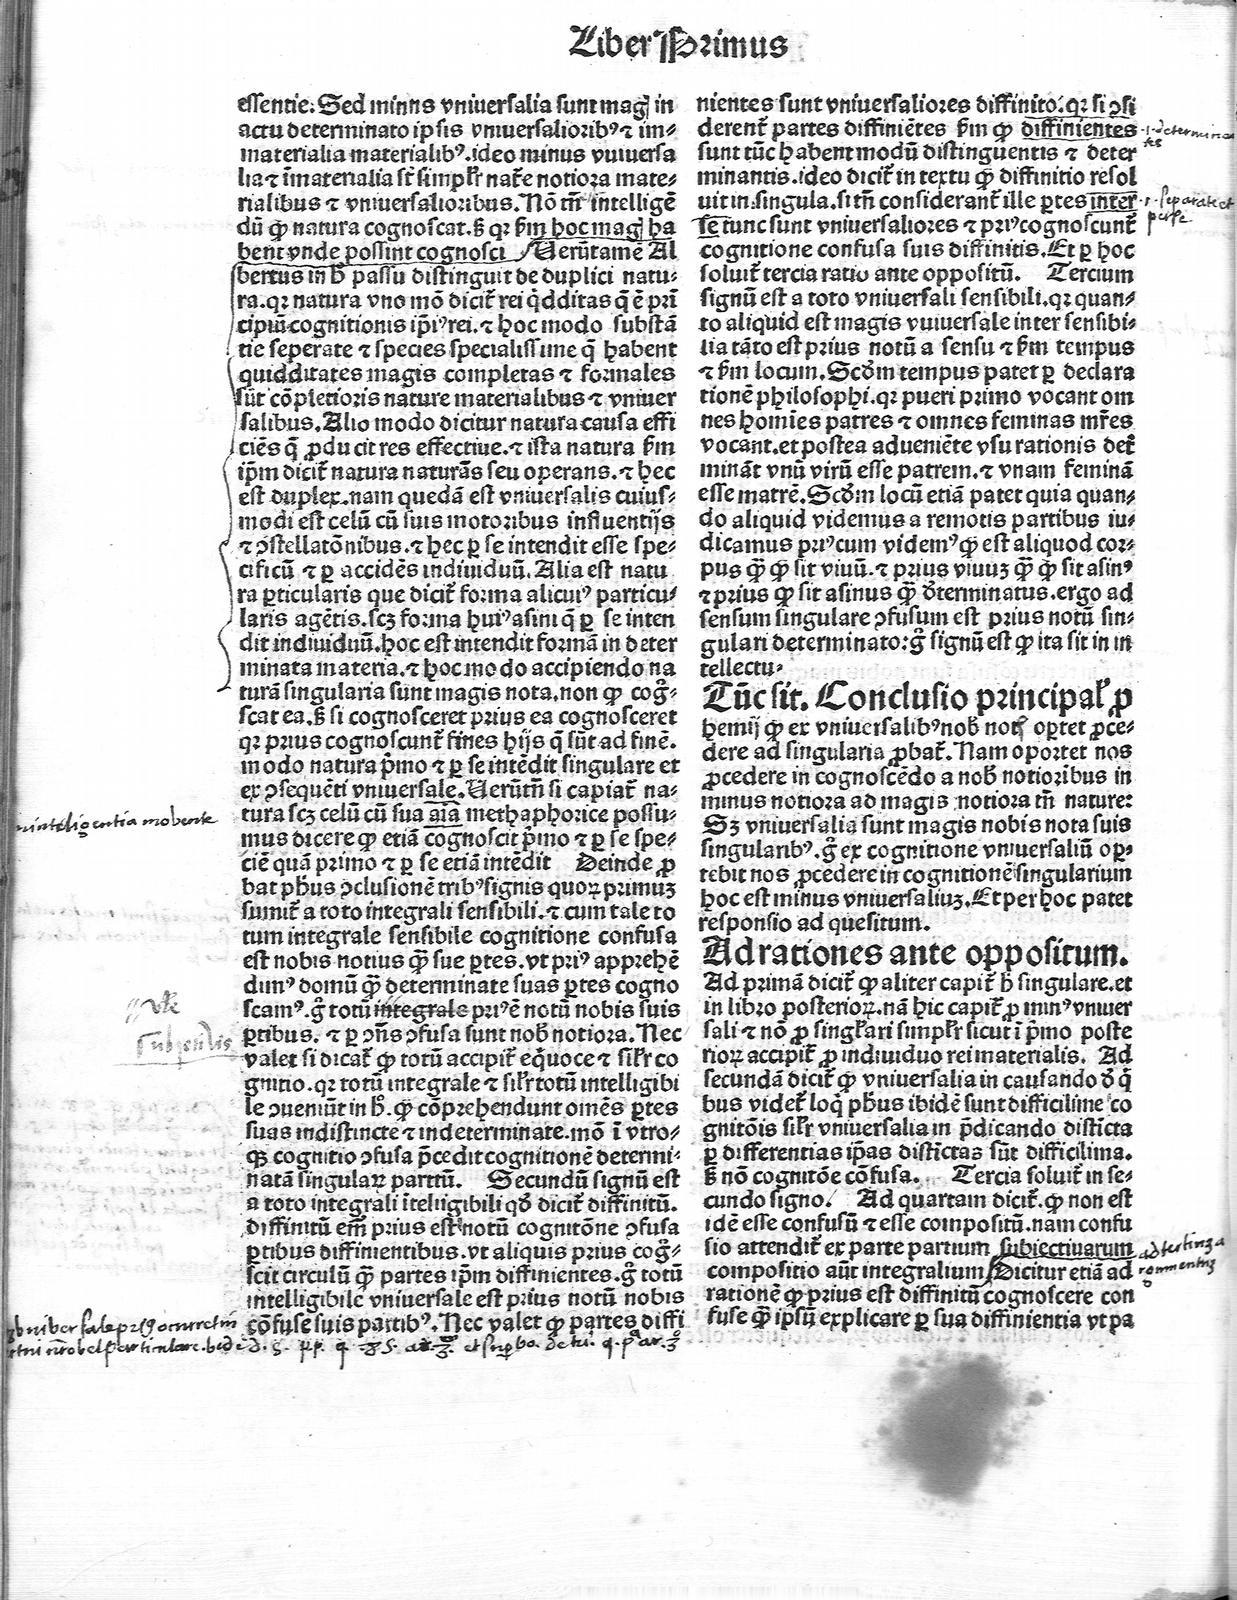 Liber Primus
essentie. Sed minus vniuersalia sunt magꝭ in
actu determinato ipsis vniuersalioribꝰ ⁊ im⸗
materialia materialibꝰ. ideo minus vniuersa
lia ⁊ īmaterialia st̄ simplr̄ natͤ notiora mate⸗
rialibus ⁊ vniuersalioribus. Nō tn̄ intelligē
dū ꝙ natura cognoscat. sꝫ qꝛ ẜm hoc magꝭ ha
bent vnde possint cognosci Uerūtamē Al
bertus in hͦ passu distinguit de duplici natu⸗
ra. qꝛ natura vno mō dicit̄ rei qͥdditas q̄ ē prī
cipiū cognitionis ip̄iꝰ rei. ⁊ hoc modo substā
tie seperate ⁊ species specialissime q̄ habent
quidditates magis completas ⁊ formales
sūt cōpletioris nature materialibus ⁊ vniuer
salibus. Alio modo dicitur natura causa effi
ciēs q̄ ꝓducit res effectiue. ⁊ ista natura ẜm
ip̄m dicit̄ natura naturās seu operans. ⁊ hec
est duplex. nam quedā est vniuersalis cuius⸗
modi est celū cū suis motoribus influentijs
⁊ ꝯstellatōnibus. ⁊ hec ꝑ se intendit esse spe⸗
cificū ⁊ ꝑ accidēs indiuiduū. Alia est natu
ra ꝑticularis que dicit̄ forma alicuiꝰ particu⸗
laris agētis. scꝫ forma huiꝰ asini q̄ ꝑ se inten
dit indiuiduū. hoc est intendit formā in deter
minata materia. ⁊ hoc modo accipiendo na
turā singularia sunt magis nota, non ꝙ cog̊⸗
scat ea. sꝫ si cognosceret prius ea cognosceret
qꝛ prius cognoscunt̄ fines hijs q̄ sūt ad finē.
modo natura pͥmo ⁊ ꝑ se intēdit singulare et
ex ꝯsequēti vniuersale. Uerūtn̄ si capiat̄ na⸗
tura scꝫ celū cū sua aīa methaphorice possu⸗
mus dicere ꝙ etiā cognoscit pͥmo ⁊ ꝑ se spe⸗
ciē quā primo ⁊ ꝑ se etiā intēdit Deinde ꝓ
bat ph̄us ꝯclusionē tribꝰ signis quoꝝ primuꝫ
sumit̄ a toto integrali sensibili. ⁊ cum tale to
tum integrale sensibile cognitione confusa
est nobis notius ꝙ̄ sue ꝑtes. vt priꝰ apprehē
dimꝰ domū ꝙ̄ determinate suas ꝑtes cogno
scamꝰ. g̊ totū integrale priꝰ ē notū nobis suis
ꝑtibus. ⁊ ꝑ ꝯn̄s ꝯfusa sunt nob̄ notiora. Nec
valet si dicat̄ ꝙ totū accipit̄ eq̄uoce ⁊ silr̄ co
gnitio. qꝛ totū integrale ⁊ silr̄ totū intelligibi
le ꝯueniūt in hͦ. ꝙ cōprehendunt omēs ꝑtes
suas indistincte ⁊ indeterminate. mō ī vtro⸗
qꝫ cognitio ꝯfusa p̄cedit cognitionē determi⸗
natā singulaꝝ partiū. Secundū signū est
a toto integrali ītelligibili qd̄ dicit̄ diffinitū.
diffinitū em̄ prius est notū cognitōne ꝯfusa
ꝑtibus diffinientibus. vt aliquis prius cog̊⸗
scit circulū ꝙ̄ partes ip̄m diffinientes. g̊ totū
intelligibile vniuersale est prius notū nobis
cōfuse suis partibꝰ. Nec valet ꝙ partes diffi
nientes sunt vniuersaliores diffinito. qꝛ si ꝯsi
derent̄ partes diffiniētes ẜm ꝙ diffinientes
sunt tūc habent modū distinguentis ⁊ deter
minantis. ideo dicit̄ in textu ꝙ diffinitio resol
uit in singula. si tn̄ considerant̄ ille ꝑtes inter
se tunc sunt vniuersaliores ⁊ priꝰ cognoscunt̄
cognitione confusa suis diffinitis. Et ꝑ hoc
soluit̄ tercia ratio ante oppositū. Tercium
signū est a toto vniuersali sensibili. qꝛ quan⸗
to aliquid est magis vniuersale inter sensibi⸗
lia tāto est prius notū a sensu ⁊ ẜm tempus
⁊ ẜm locum. Scd̄m tempus patet ꝑ declara
tionē philosophi. qꝛ pueri primo vocant om
nes homīes patres ⁊ omnes feminas mr̄es
vocant. et postea adueniēte vsu rationis det̄
mināt vnū virū esse patrem. ⁊ vnam feminā
esse matrē. Scd̄m locū etiā patet quia quan⸗
do aliquid videmus a remotis partibus iu⸗
dicamus priꝰ cum videmꝰ ꝙ est aliquod cor⸗
pus ꝙ̄ ꝙ sit viuū. ⁊ prius viuuꝫ ꝙ̄ ꝙ sit asinꝰ
⁊ prius ꝙ sit asinus ꝙ̄ d̄terminatus. ergo ad
sensum singulare ꝯfusum est prius notū sin⸗
gulari determinato: g̊ signū est ꝙ ita sit in in
tellectu.
Tūc sit. Conclusio principal̄ ꝓ
hemij ꝙ ex vniuersalibꝰ nob̄ notꝭ oportet ꝓce⸗
dere ad singularia ꝓbat̄. Nam oportet nos
ꝓcedere in cognoscēdo a nob̄ notioribus in
minus notiora ad magis notiora tn̄ nature:
Sꝫ vniuersalia sunt magis nobis nota suis
singularibꝰ. g̊ ex cognitione vniuersaliū opꝛ⸗
tebit nos ꝓcedere in cognitionē singularium
hoc est minus vniuersaliuꝫ. Et per hoc patet
responsio ad quesitum.
Ad rationes ante oppositum.
Ad primā dicit̄ ꝙ aliter capit̄ hͦ singulare. et
in libro posterioꝝ. nā hic capit̄ ꝓ minꝰ vniuer
sali ⁊ nō ꝓ singl̄ari simplr̄ sicut ī pͥmo poste
rioꝝ accipit̄ ꝓ indiuiduo rei materialis. Ad
secundā dicit̄ ꝙ vniuersalia in causando d̄ q̄
bus videt̄ loqͥ ph̄us ibidē sunt difficilime co
gnitōis silr̄ vniuersalia in p̄dicando disticta
ꝑ differentias ip̄as distīctas sūt difficilima.
sꝫ nō cognitōe cōfusa. Tercia soluit̄ in se⸗
cundo signo. Ad quartam dicit̄. ꝙ non est
idē esse confusū ⁊ esse compositū. nam confu
sio attendit̄ ex parte partium subiectiuarum
compositio aūt integralium Dicitur etiā ad
rationē ꝙ prius est diffinitū cognoscere con
fuse ꝙ̄ ipsū explicare ꝑ sua diffinientia vt pa